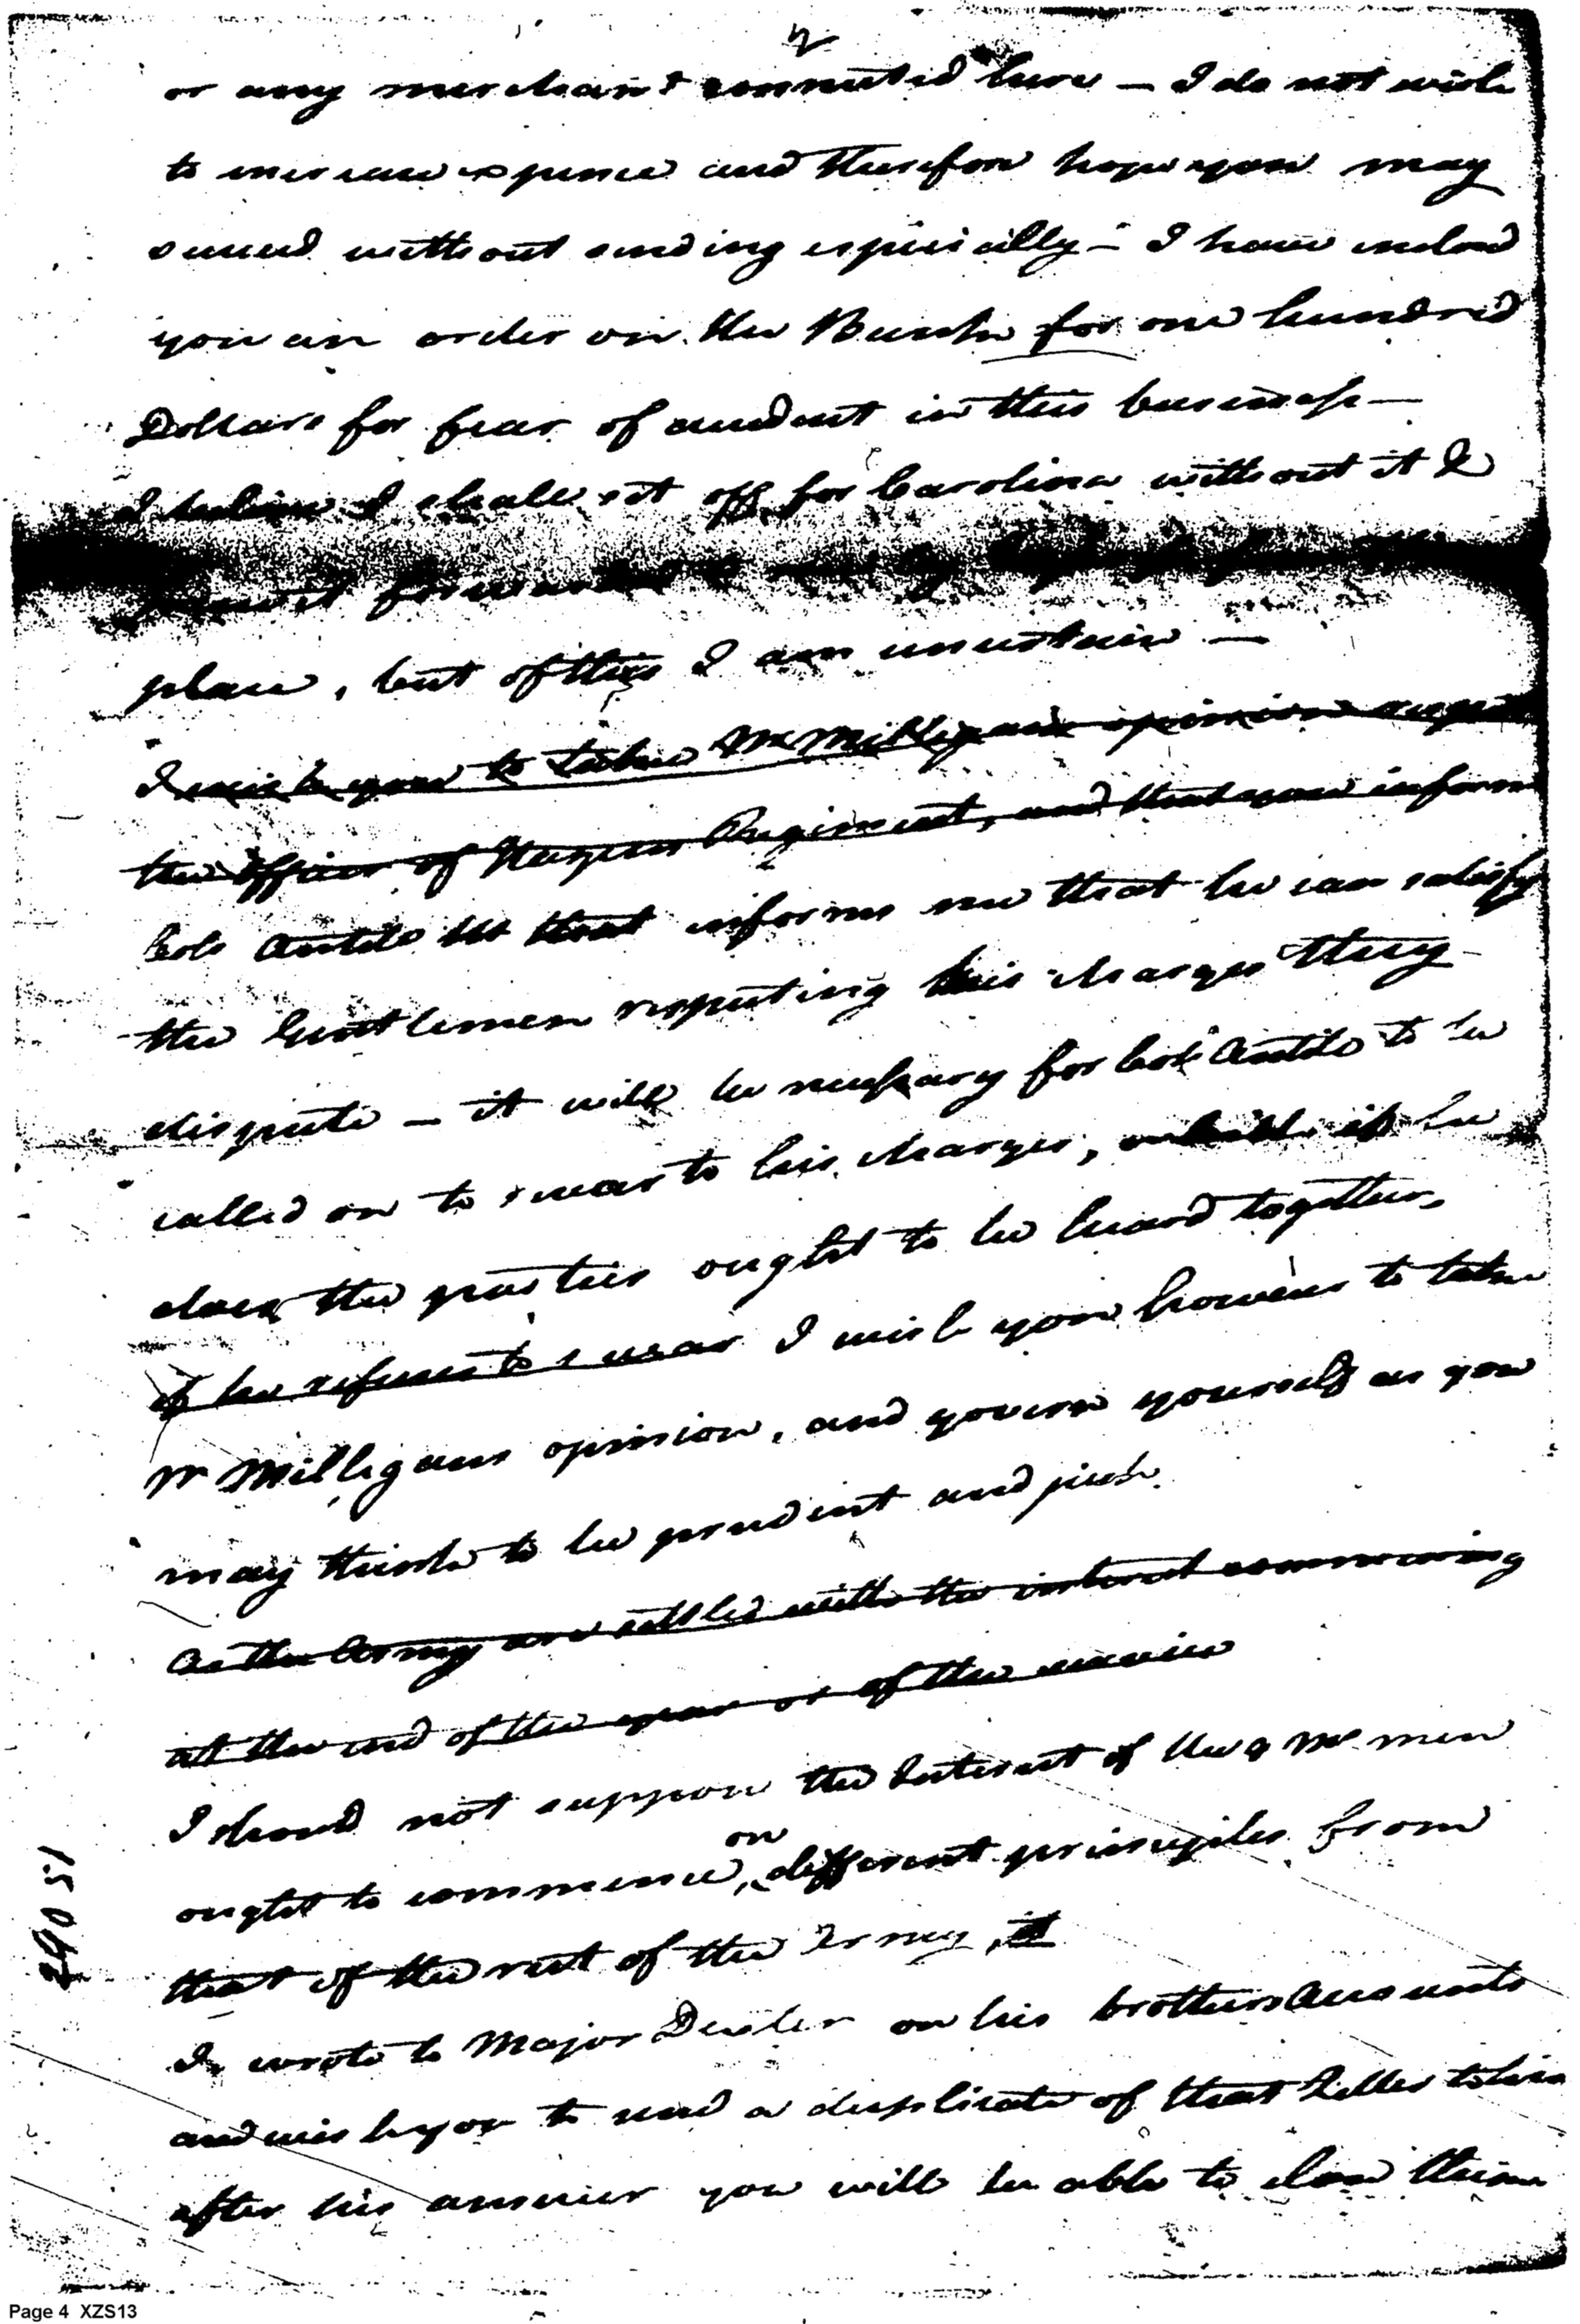 2
or any merchant connected here — I do not wish
to increase expence and therefore hope you may
succeed without sending especially — I have inclosed
you an order on the Bank for one hundred
Dollars for fear of accident in this business —
I believe I shall set off for Carolina without it &
forward
place, but of this I am uncertain —
I wish you to take Mr Milligans opinion
the officers of Hazens Regiment, and that you inform
Colo Antill that informs me that he can satisfy
the Gentlemen respecting his charges they
dispute — it will be necessary for Colo Antill to be
called on to swear to his charges, if he
does the parties ought to be heard together,
if he refuses to swear I wish you however to take
Mr Milligans opinion, and govern yourself as you
may think to be prudent and just.
As the Army are settled with the interest commencing
at the end of the year or of the service
I should not suppose the Interest of the men
on
ought to commence, different principles from
that of the rest of the Army, it
I wrote to Major on his brothers Accounts
and wish you to send a duplicate of that Letter to him
after his answer you will be able to close them
Page 4 XZS13